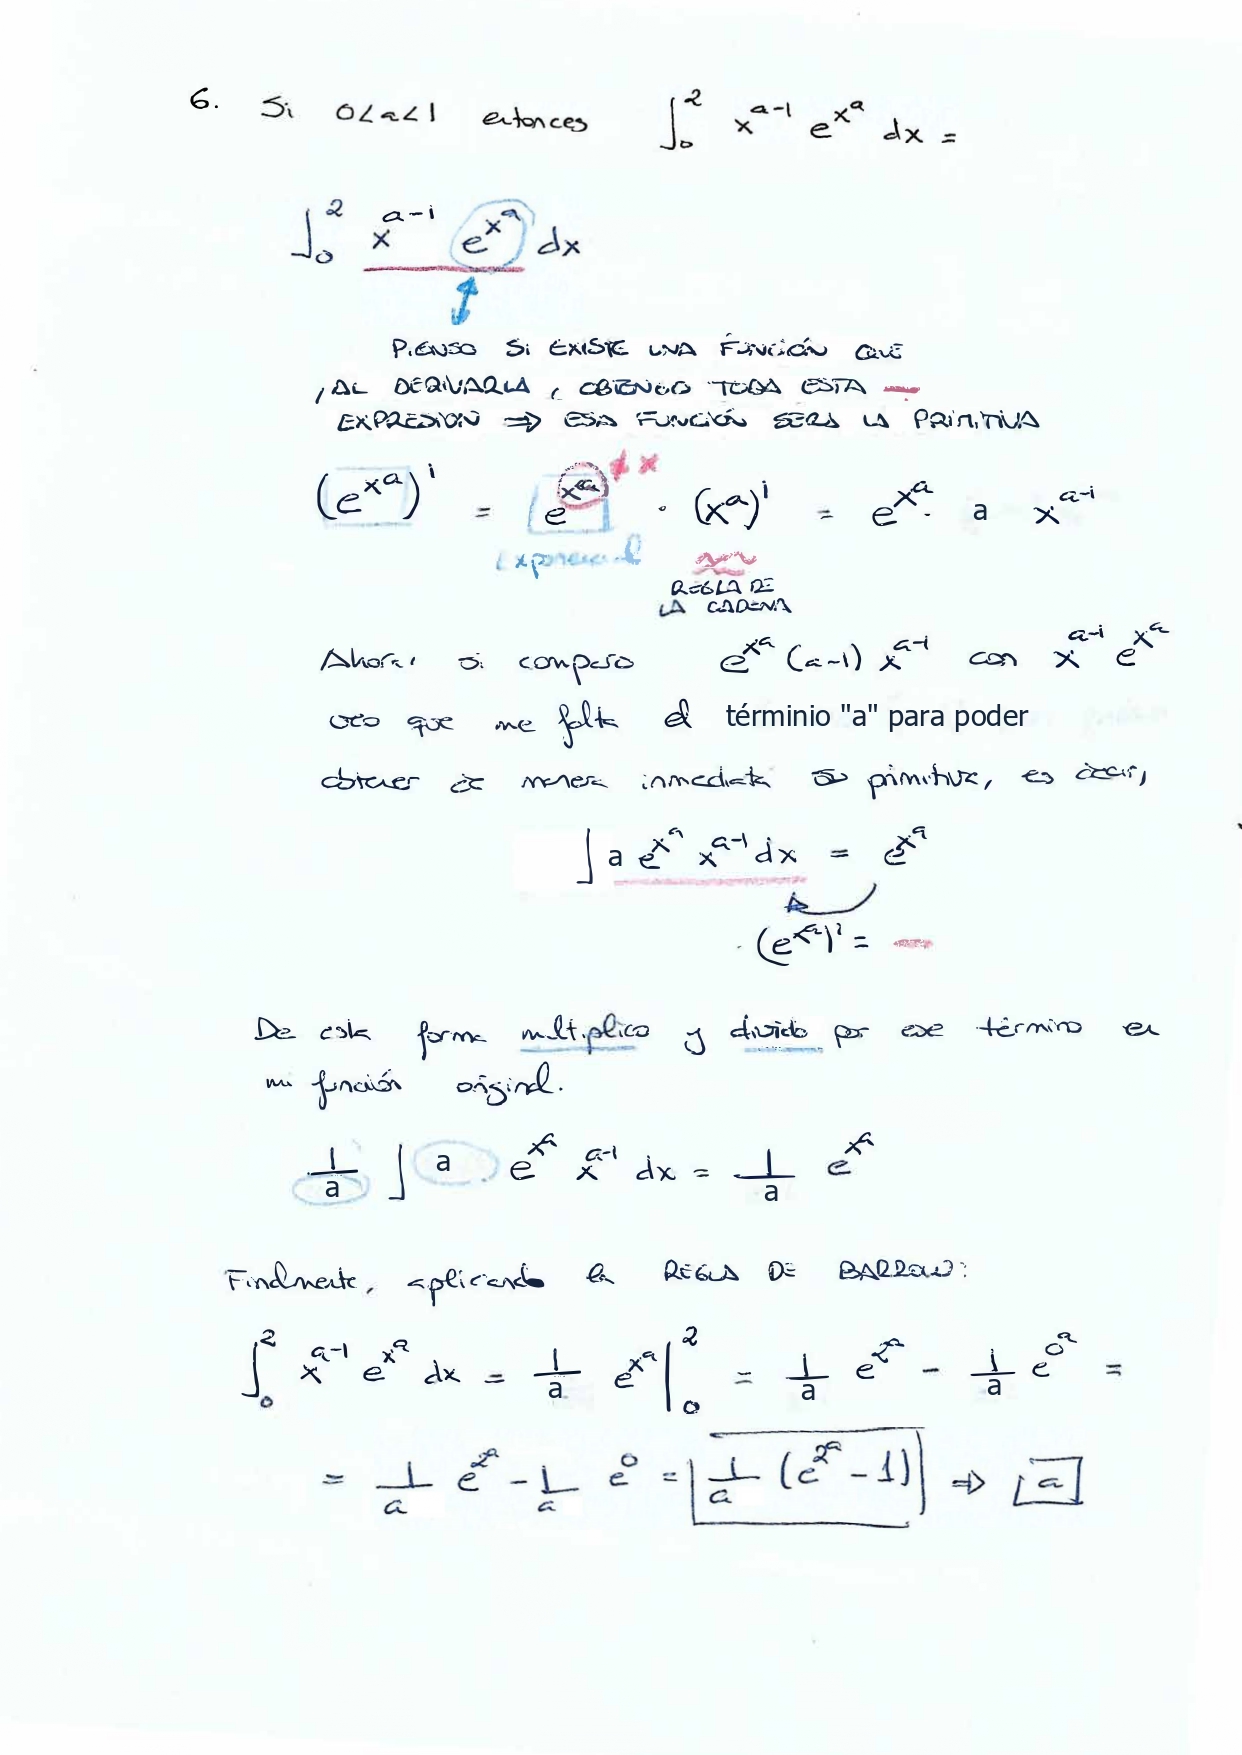 6. Si 0<a<1 entonces ∫₀² x^(a-1) e^(x^a) dx =
∫₀² x^(a-1) e^(x^a) dx
PIENSO SI EXISTE UNA FUNCIÓN QUE
, AL DERIVARLA, OBTENGO TODA ESTA —
EXPRESIÓN ⇒ ESA FUNCIÓN SERÁ LA PRIMITIVA
(e^(x^a))' = e^(x^a) · (x^a)' = e^(x^a) · a x^(a-1)
≠ x
Exponencial
REGLA DE
LA CADENA
Ahora si comparo e^(x^a) (a-1) x^(a-1) con x^(a-1) e^(x^a)
veo que me falta el términio "a" para poder
obtener de manera inmediata su primitiva, es decir,
∫ a e^(x^a) x^(a-1) dx = e^(x^a)
(e^(x^a))' = —
De esta forma multiplico y divido por ese término en
mi función original.
1/a ∫ a e^(x^a) x^(a-1) dx = 1/a e^(x^a)
Finalmente, aplicando la REGLA DE BARROW:
∫₀² x^(a-1) e^(x^a) dx = 1/a e^(x^a) |₀² = 1/a e^(2^a) - 1/a e^(0^a) =
= 1/a e^(2^a) - 1/a e^0 = 1/a (e^(2^a) - 1) ⇒ a